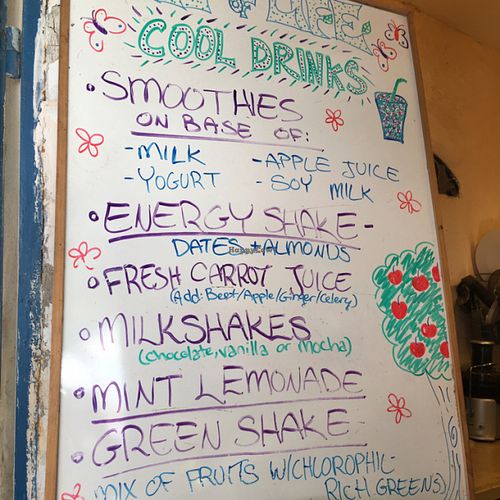 OF LIFE
COOL DRINKS
• SMOOTHIES
ON BASE OF:
- MILK - APPLE JUICE
- YOGURT - SOY MILK
• ENERGY SHAKE -
DATES + ALMONDS
• FRESH CARROT JUICE
(Add: Beet/Apple/Ginger/Celery)
• MILKSHAKES
(Chocolate, vanilla or Mocha)
• MINT LEMONADE
• GREEN SHAKE -
MIX OF FRUITS W/CHLOROPHIL-
RICH GREENS)